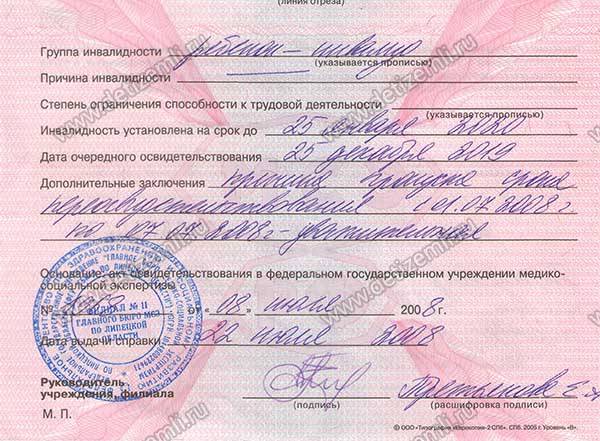 (линия отреза)
Группа инвалидности ребенок-инвалид
(указывается прописью)
Причина инвалидности
Степень ограничения способности к трудовой деятельности
(указывается прописью)
Инвалидность установлена на срок до 25 января 2020
Дата очередного освидетельствования 25 декабря 2019
Дополнительные заключения причина пропуска срока
переосвидетельствования с 01.07.2008г.
по 07.07.2008г-уважительная
Основание: акт освидетельствования в федеральном государственном учреждении медико-
социальной экспертизы
№ от «08» июля 2008г.
Дата выдачи справки 22 июля 2008
ФИЛИАЛ № 11
ГЛАВНОГО БЮРО МСЭ
ПО ЛИПЕЦКОЙ
ОБЛАСТИ
Руководитель
учреждения, филиала
(подпись) (расшифровка подписи)
М. П.
© ООО «Типография «Ирекопия-2 СПб». СПб. 2005 г. Уровень «В».
www.detizemli.ru